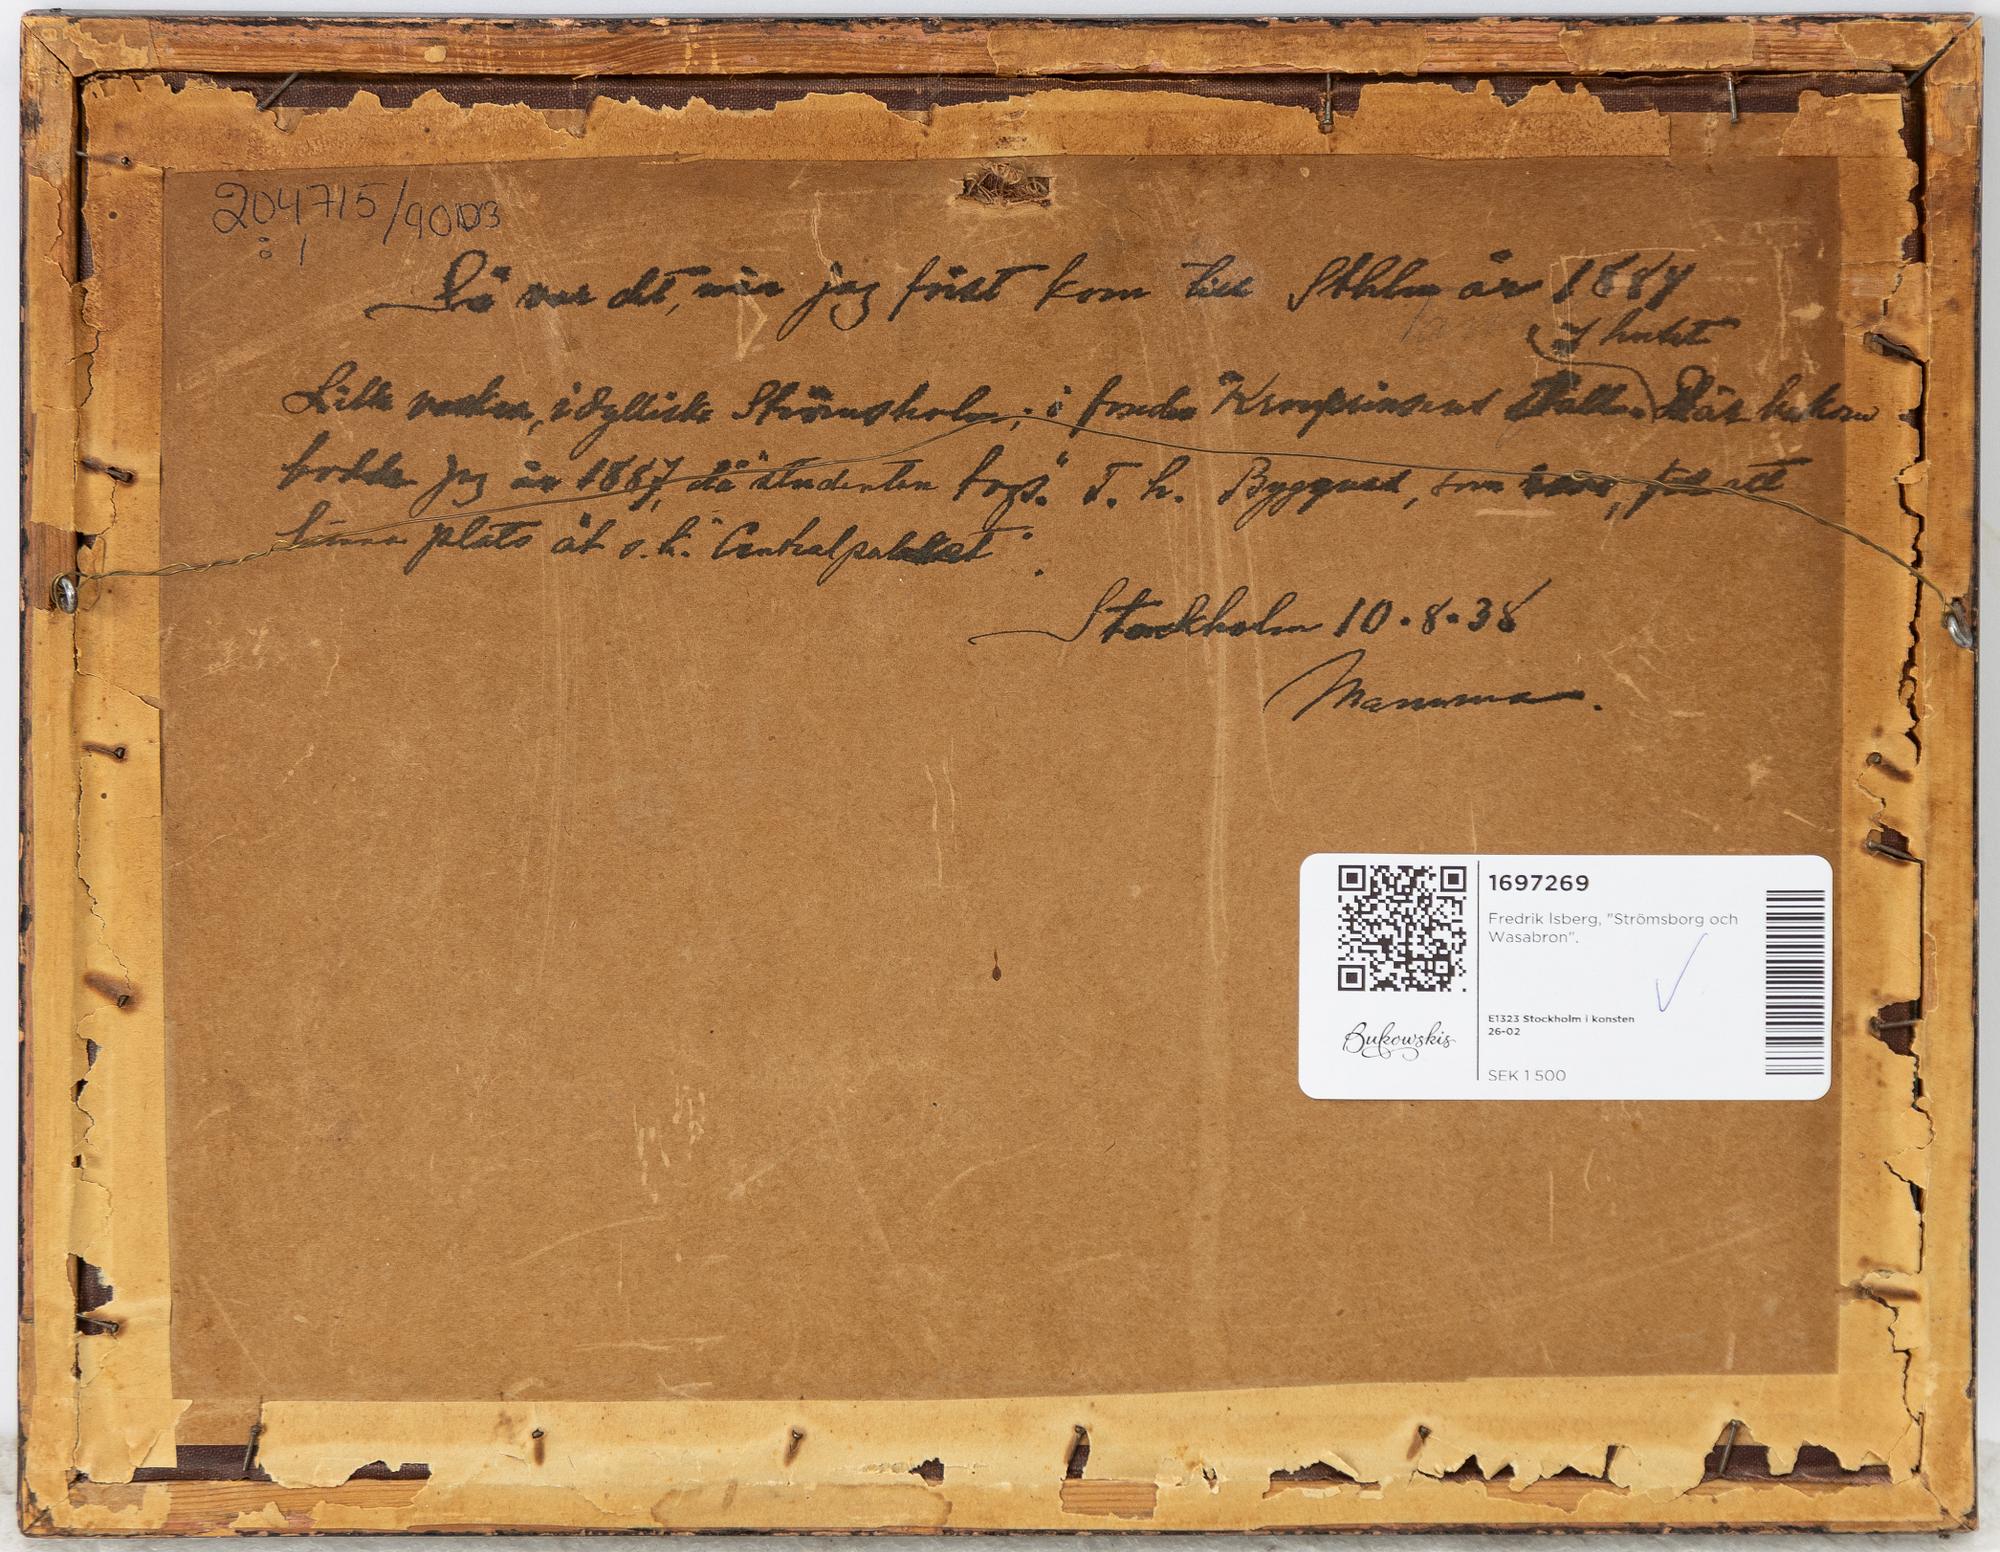 204715/90103
: 1
Så var det, när jag först kom till Sthlm år 1887
Lilla vackra, idylliska Strömsholm; i fonden "Kronprinsens Stall". Där
bodde jag år 1887, då studenten
lämna plats åt s.k. "Centralpalatset".
Stockholm 10.8.38
Mamma.
1697269
Fredrik Isberg, "Strömsborg och
Wasabron".
E1323 Stockholm i konsten
26-02
SEK 1 500
Bukowskis